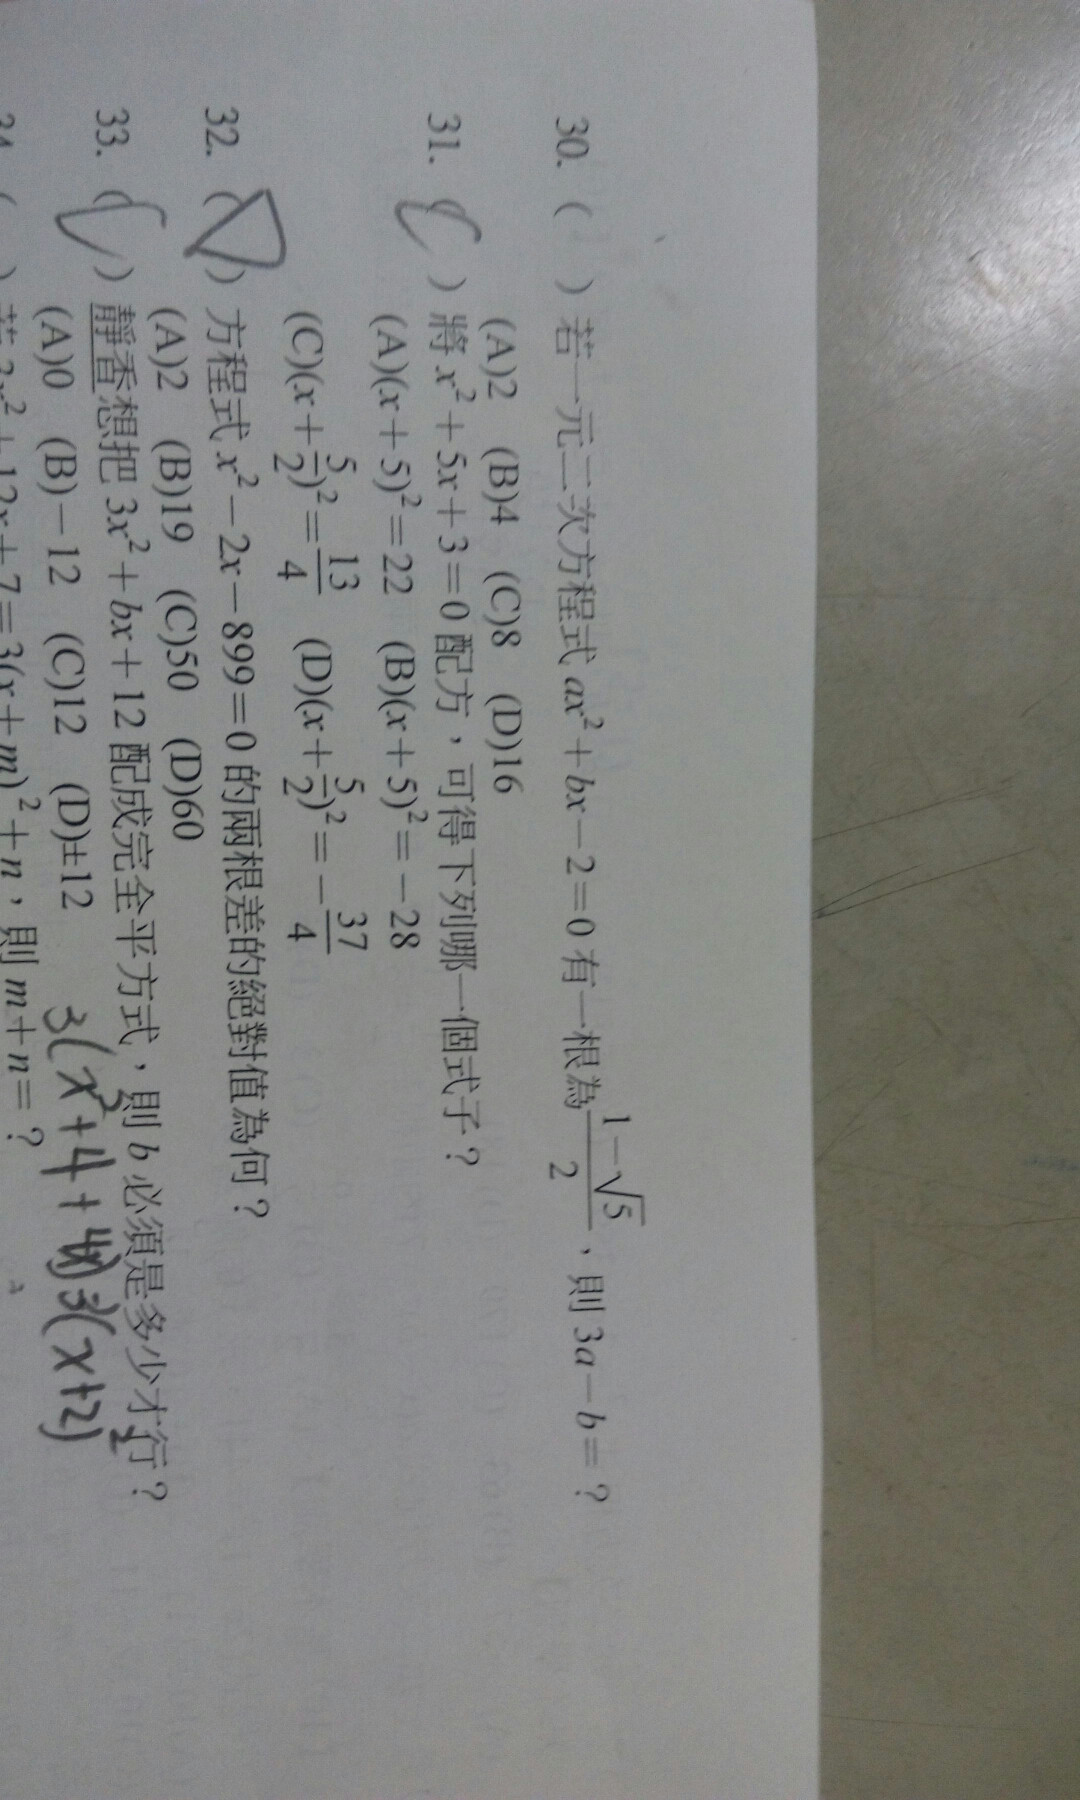 30. ( ) 若一元二次方程式 ax²+bx−2=0 有一根為 (1−√5)/2，則 3a−b=？
(A)2 (B)4 (C)8 (D)16
31. (C) 將 x²+5x+3=0 配方，可得下列哪一個式子？
(A)(x+5)²=22 (B)(x+5)²=−28
(C)(x+5/2)²=13/4 (D)(x+5/2)²=−37/4
32. (D) 方程式 x²−2x−899=0 的兩根差的絕對值為何？
(A)2 (B)19 (C)50 (D)60
33. (C) 靜香想把 3x²+bx+12 配成完全平方式，則 b 必須是多少才行？
(A)0 (B)−12 (C)12 (D)±12 3(x²+4+4x) 3(x+2)²
34. ( ) 若 3x²+12x+7=3(x+m)²+n，則 m+n=？